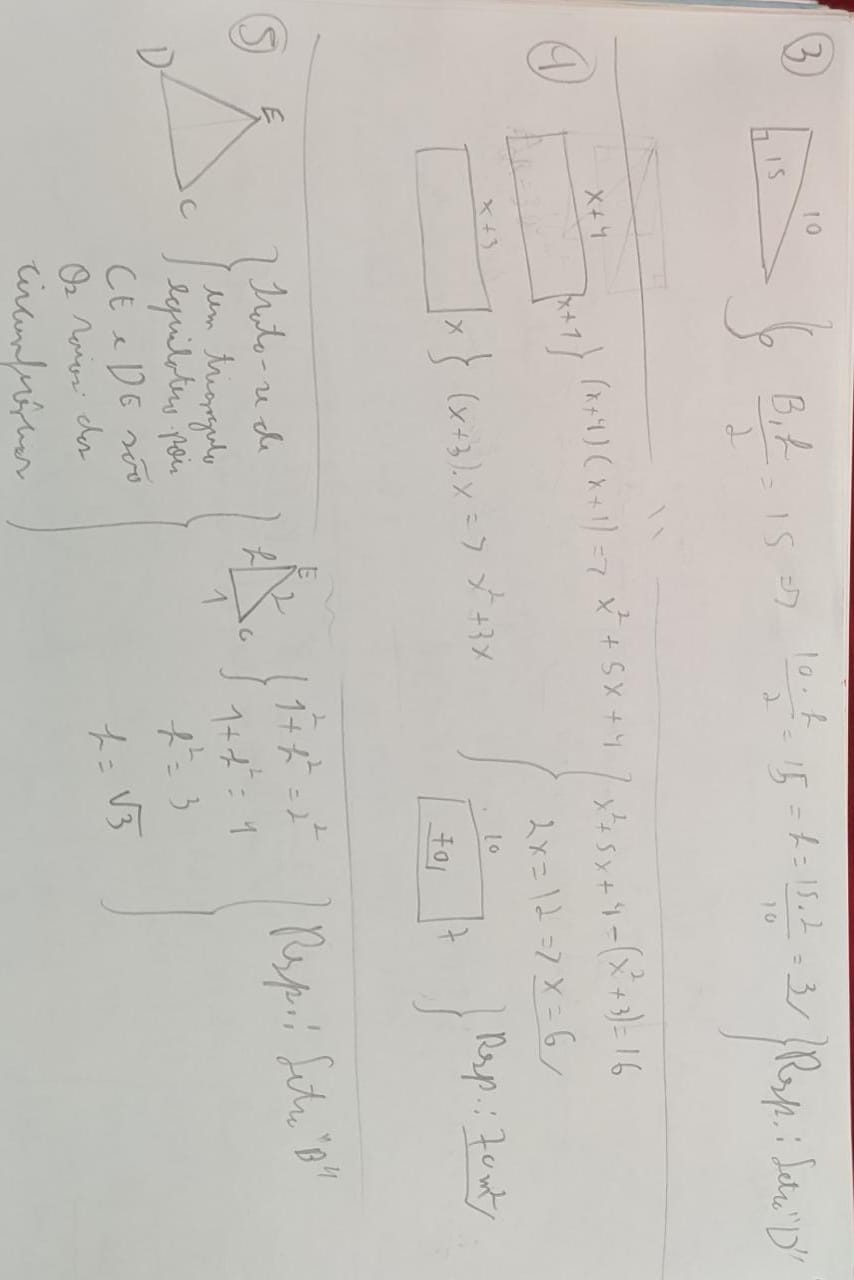 ③
10
15
B.h/2 = 15 => 10.h/2 = 15 = h = 15.2/10 = 3
Resp.: Letra "D"
④
x+4
x+1
(x+4)(x+1) => x² + 5x + 4
x²+5x+4-(x²+3)=16
2x=12 => x=6
x+3
x
(x+3).x => x²+3x
10
70
7
Resp.: 70m²
⑤
E
D
C
Trata-se de
um triangulo
equilatero pois
CE e DE são
Os raios das
circunferências
E
h
2
1
C
1²+h²=2²
1+h²=4
h²=3
h=√3
Resp.: Letra "B"